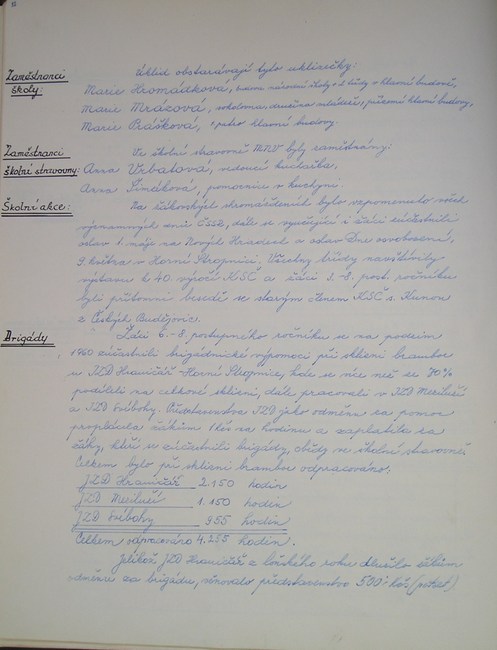 Zaměstnanci školy:
Úklid obstarávají tyto uklizečky:
Marie Hromádková, budova národní školy + 2 třídy v hlavní budově,
Marie Mrázová, sokolovna, družina mládeže, přízemí hlavní budovy,
Marie Prášková, patro hlavní budovy.
Zaměstnanci školní stravovny:
Ve školní stravovně byly zaměstnány:
Anna Vrbatová, vedoucí kuchařka,
Anna Šindková, pomocnice v kuchyni.
Školní akce:
Na žákovských shromážděních bylo vzpomenuto všech
významných dnů ČSSR, dále se vyučující i žáci zúčastnili
oslav 1. máje na Nových Hradech a oslav Dne osvobození,
9. května v Horní Stropnici. Všechny třídy navštívily
výstavu k 40. výročí KSČ a žáci 3.-8. post. ročníku
byli přítomni besedě se starým členem KSČ s. Kunou
z Českých Budějovic.
Brigády
Žáci 6.-8. postupného ročníku se na podzim
1960 zúčastnili brigádnické výpomoci při sklizni brambor
u JZD Hraničář Horní Stropnice, kde se více než se 70%
podíleli na celkové sklizni, dále pracovali v JZD Meziluží
a JZD Svébohy. Představenstva JZD jako odměnu za pomoc
proplácela žákům 1 Kčs na hodinu a zaplatila za
žáky, kteří se zúčastnili brigády, obědy ve školní stravovně.
Celkem bylo při sklizni brambor odpracováno:
JZD Hraničář 2.150 hodin
JZD Meziluží 1.150 hodin
JZD Svébohy 955 hodin
Celkem odpracováno 4.255 hodin.
Jelikož JZD Hraničář z loňského roku dlužilo žákům
odměnu za brigádu, věnovalo představenstvo 500.- Kčs (pětset)